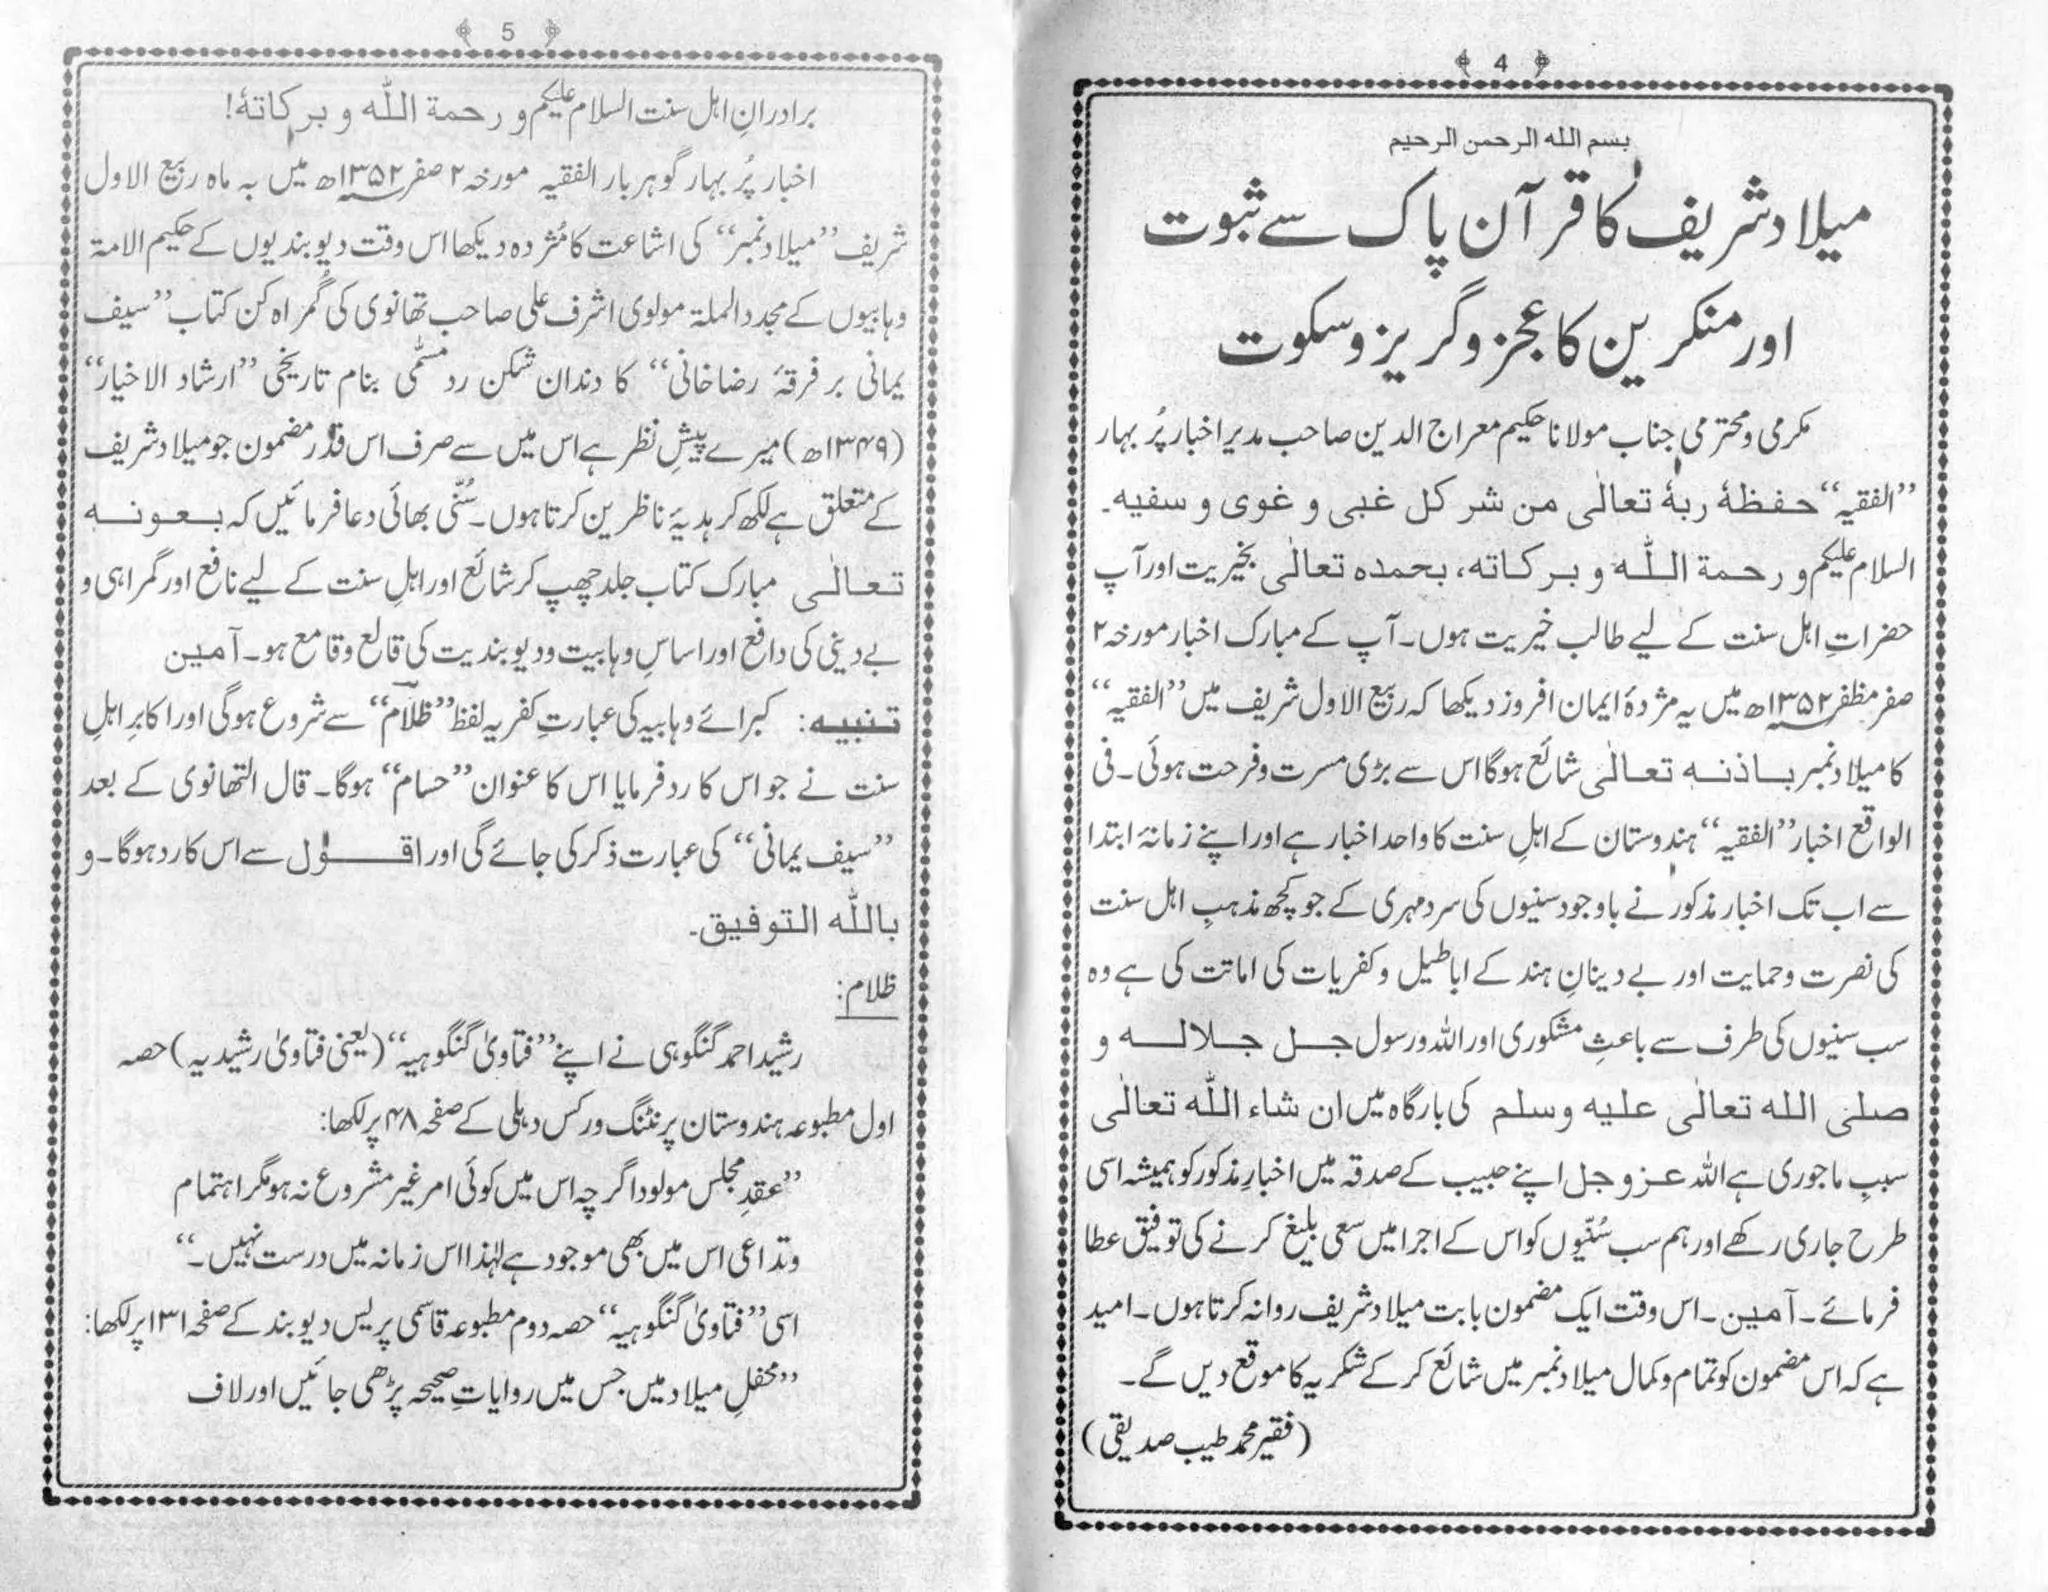 4
بسم الله الرحمن الرحیم
میلاد شریف کا قرآن پاک سے ثبوت
اور منکرین کا عجز و گریز و سکوت
مکرمی و محترمی جناب مولانا حکیم معراج الدین صاحب مدیر اخبار پُر بہار
”الفقیہ“ حفظہٗ ربہٗ تعالٰی من شر کل غبی و غوی و سفیہ۔
السلام علیکم و رحمۃ اللّٰہ و برکاتہ، بحمدہ تعالٰی بخیریت اور آپ
حضراتِ اہل سنت کے لیے طالب خیریت ہوں۔ آپ کے مبارک اخبار مورخہ ۲
صفر مظفر ۱۳۵۲ھ میں یہ مژدۂ ایمان افروز دیکھا کہ ربیع الاول شریف میں ”الفقیہ“
کا میلاد نمبر باذنہٖ تعالٰی شائع ہوگا اس سے بڑی مسرت و فرحت ہوئی۔ فی
الواقع اخبار ”الفقیہ“ ہندوستان کے اہلِ سنت کا واحد اخبار ہے اور اپنے زمانۂ ابتدا
سے اب تک اخبار مذکور نے باوجود سنیوں کی سرد مہری کے جو کچھ مذہبِ اہل سنت
کی نصرت و حمایت اور بے دینانِ ہند کے اباطیل و کفریات کی اماتت کی ہے وہ
سب سنیوں کی طرف سے باعثِ مشکوری اور اللہ و رسول جل جلالہ و
صلی اللہ تعالٰی علیہ وسلم کی بارگاہ میں ان شاء اللّٰہ تعالٰی
سببِ ماجوری ہے اللہ عزوجل اپنے حبیب کے صدقہ میں اخبارِ مذکور کو ہمیشہ اسی
طرح جاری رکھے اور ہم سب سُنّیوں کو اس کے اجرا میں سعی بلیغ کرنے کی توفیق عطا
فرمائے۔ آمین۔ اس وقت ایک مضمون بابت میلاد شریف روانہ کرتا ہوں۔ امید
ہے کہ اس مضمون کو تمام و کمال میلاد نمبر میں شائع کر کے شکریہ کا موقع دیں گے۔
(فقیر محمد طیب صدیقی)
5
برادرانِ اہل سنت السلام علیکم و رحمۃ اللّٰہ و برکاتہٗ!
اخبار پُر بہار گوہر بار الفقیہ مورخہ ۲ صفر ۱۳۵۲ھ میں بہ ماہ ربیع الاول
شریف ”میلاد نمبر“ کی اشاعت کا مُژدہ دیکھا اس وقت دیوبندیوں کے حکیم الامۃ
وہابیوں کے مجدد الملۃ مولوی اشرف علی صاحب تھانوی کی گمراہ کن کتاب ”سیف
یمانی بر فرقۂ رضاخانی“ کا دندان شکن رد مسمّٰی بنام تاریخی ”ارشاد الاخیار“
(۱۳۴۹ھ) میرے پیشِ نظر ہے اس میں سے صرف اس قدر مضمون جو میلاد شریف
کے متعلق ہے لکھ کر ہدیۂ ناظرین کرتا ہوں۔ سُنّی بھائی دعا فرمائیں کہ بعونہ
تعالٰی مبارک کتاب جلد چھپ کر شائع اور اہلِ سنت کے لیے نافع اور گمراہی و
بے دینی کی دافع اور اساسِ وہابیت و دیوبندیت کی قالع و قامع ہو۔ آمین
تنبیہ: کبرائے وہابیہ کی عبارتِ کفریہ لفظ ”ظلام“ سے شروع ہوگی اور اکابرِ اہلِ
سنت نے جو اس کا رد فرمایا اس کا عنوان ”حسام“ ہوگا۔ قال التھانوی کے بعد
”سیف یمانی“ کی عبارت ذکر کی جائے گی اور اقول سے اس کا رد ہوگا۔ و
باللّٰہ التوفیق۔
ظلام:
رشید احمد گنگوہی نے اپنے ”فتاویٰ گنگوہیہ“ (یعنی فتاویٰ رشیدیہ) حصہ
اول مطبوعہ ہندوستان پرنٹنگ ورکس دہلی کے صفحہ ۴۸ پر لکھا:
”عقدِ مجلس مولود اگرچہ اس میں کوئی امر غیر مشروع نہ ہو مگر اہتمام
و تداعی اس میں بھی موجود ہے لہٰذا اس زمانہ میں درست نہیں۔“
اسی ”فتاویٰ گنگوہیہ“ حصہ دوم مطبوعہ قاسمی پریس دیوبند کے صفحہ ۱۳۱ پر لکھا:
”محفلِ میلاد میں جس میں روایاتِ صحیحہ پڑھی جائیں اور لاف